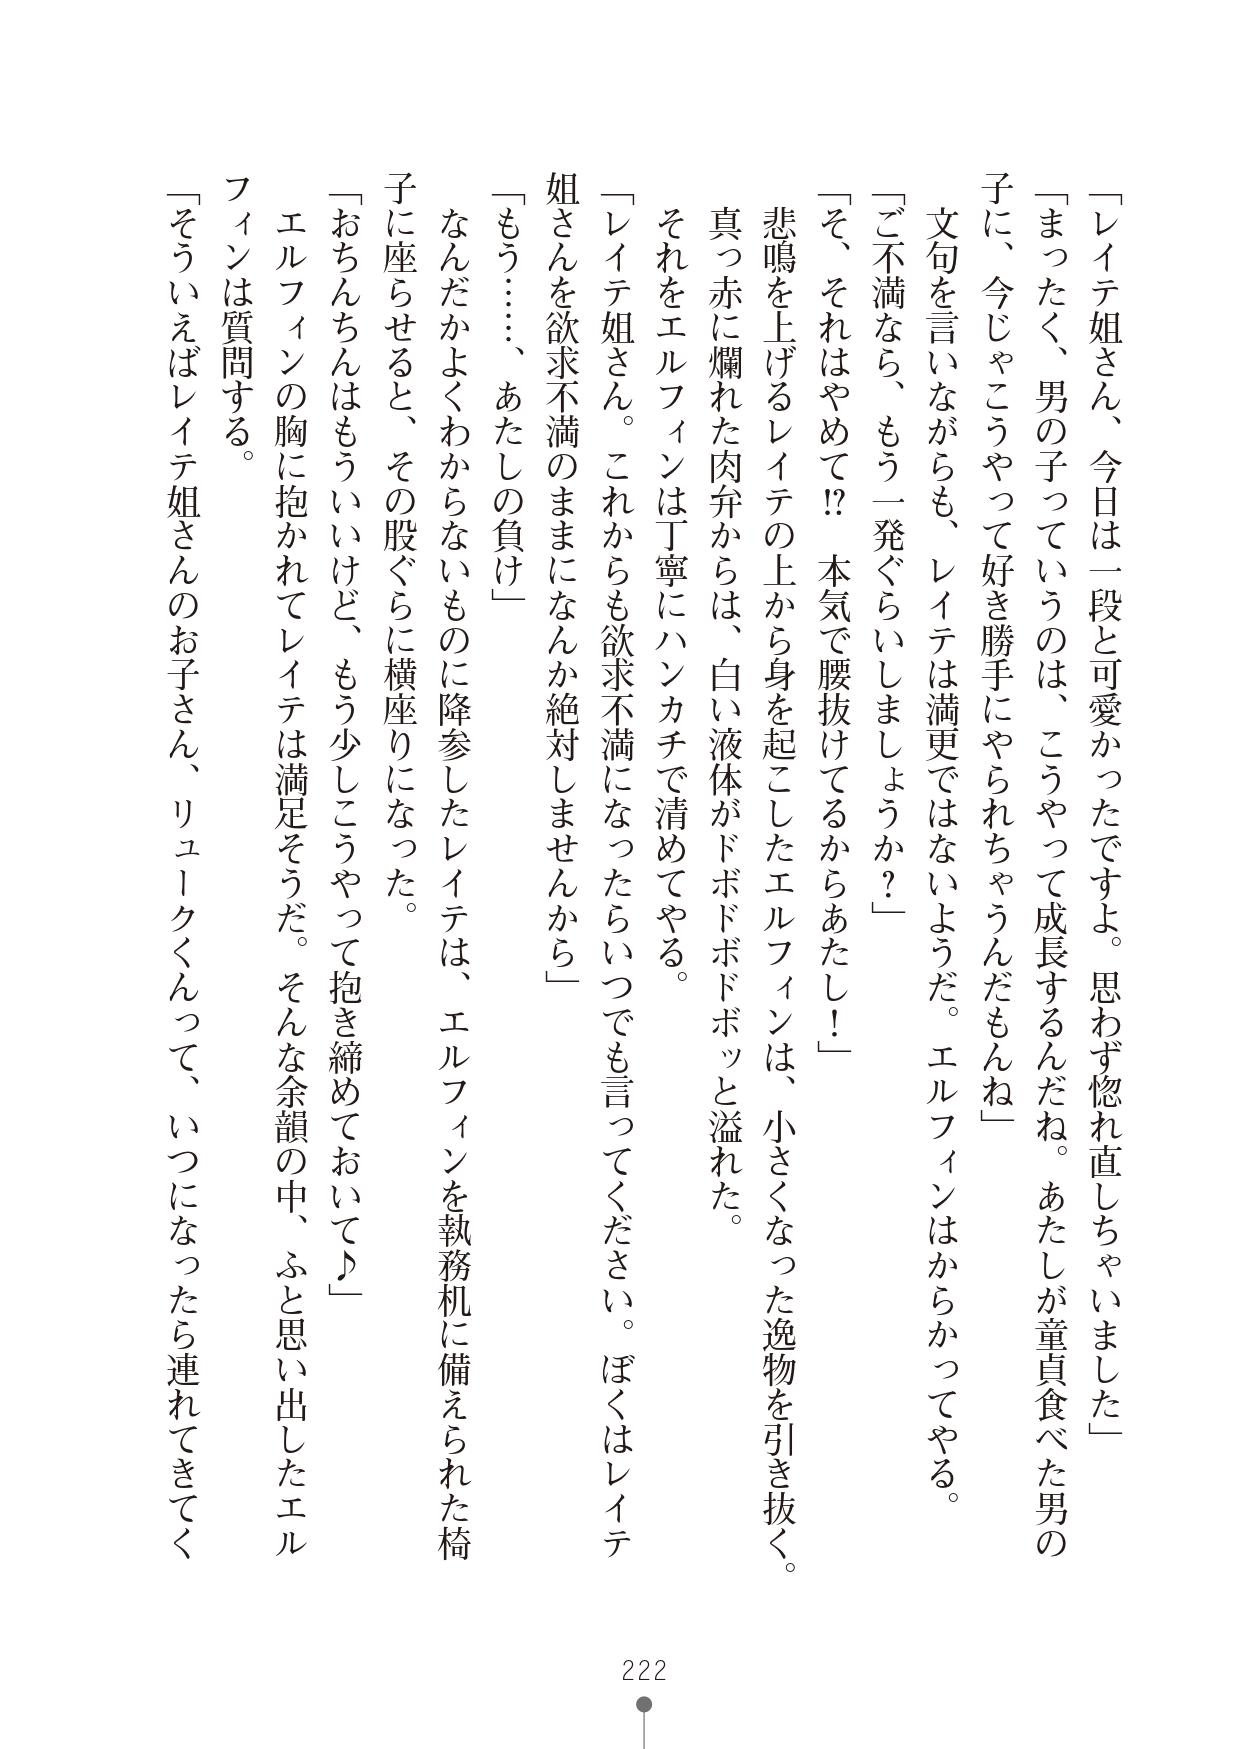 「レイテ姐さん、今日は一段と可愛かったですよ。思わず惚れ直しちゃいました」
「まったく、男の子っていうのは、こうやって成長するんだね。あたしが童貞食べた男の
子に、今じゃこうやって好き勝手にやられちゃうんだもんね」
文句を言いながらも、レイテは満更ではないようだ。エルフィンはからかってやる。
「ご不満なら、もう一発ぐらいしましょうか？」
「そ、それはやめて!?　本気で腰抜けてるからあたし！」
悲鳴を上げるレイテの上から身を起こしたエルフィンは、小さくなった逸物を引き抜く。
真っ赤に爛れた肉弁からは、白い液体がドボドボドボッと溢れた。
それをエルフィンは丁寧にハンカチで清めてやる。
「レイテ姐さん。これからも欲求不満になったらいつでも言ってください。ぼくはレイテ
姐さんを欲求不満のままになんか絶対しませんから」
「もう……、あたしの負け」
なんだかよくわからないものに降参したレイテは、エルフィンを執務机に備えられた椅
子に座らせると、その股ぐらに横座りになった。
「おちんちんはもういいけど、もう少しこうやって抱き締めておいて♪」
エルフィンの胸に抱かれてレイテは満足そうだ。そんな余韻の中、ふと思い出したエル
フィンは質問する。
「そういえばレイテ姐さんのお子さん、リュークくんって、いつになったら連れてきてく
222